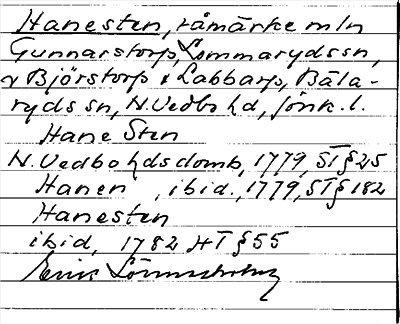 Hanesten, råmärke mln
Gunnarstorp, Lommaryds sn,
v Björstorp & Labbarp, Bäla-
ryds sn, N.Vedbo hd, Jönk.l.
Hane Sten
N.Vedbo hds domb, 1779, ST § 25
Hanen, ibid., 1779, ST § 182
Hanesten
ibid, 1782 HT § 55
Erik